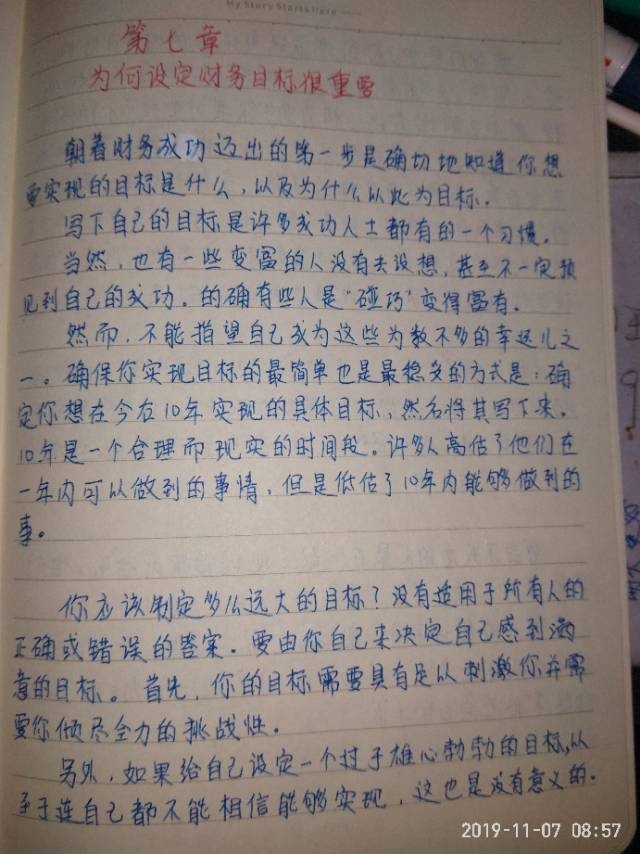 My Story Starts Here
第七章
为何设定财务目标很重要
朝着财务成功迈出的第一步是确切地知道你想
要实现的目标是什么，以及为什么以此为目标.
写下自己的目标是许多成功人士都有的一个习惯.
当然，也有一些变富的人没有去设想，甚至不一定预
见到自己的成功。的确有些人是“碰巧”变得富有.
然而，不能指望自己成为这些为数不多的幸运儿之
一。确保你实现目标的最简单也是最稳妥的方式是：确
定你想在今在10年实现的具体目标，然后将其写下来.
10年是一个合理而现实的时间段。许多人高估了他们在
一年内可以做到的事情，但是低估了10年内能够做到的
事。
你应该制定多么远大的目标？没有适用于所有人的
正确或错误的答案.要由你自己来决定自己感到满
意的目标。首先，你的目标需要具有足以刺激你并需
要你倾尽全力的挑战性.
另外，如果给自己设定一个过于雄心勃勃的目标,以
至于连自己都不能相信能够实现，这也是没有意义的.
2019-11-07 08:57